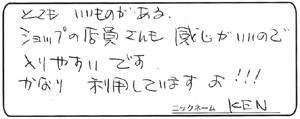 とても いいものがある.
ショップの店員さんも 感じがいいので
入りやすいです.
かなり 利用していますよ!!!
ニックネーム KEN